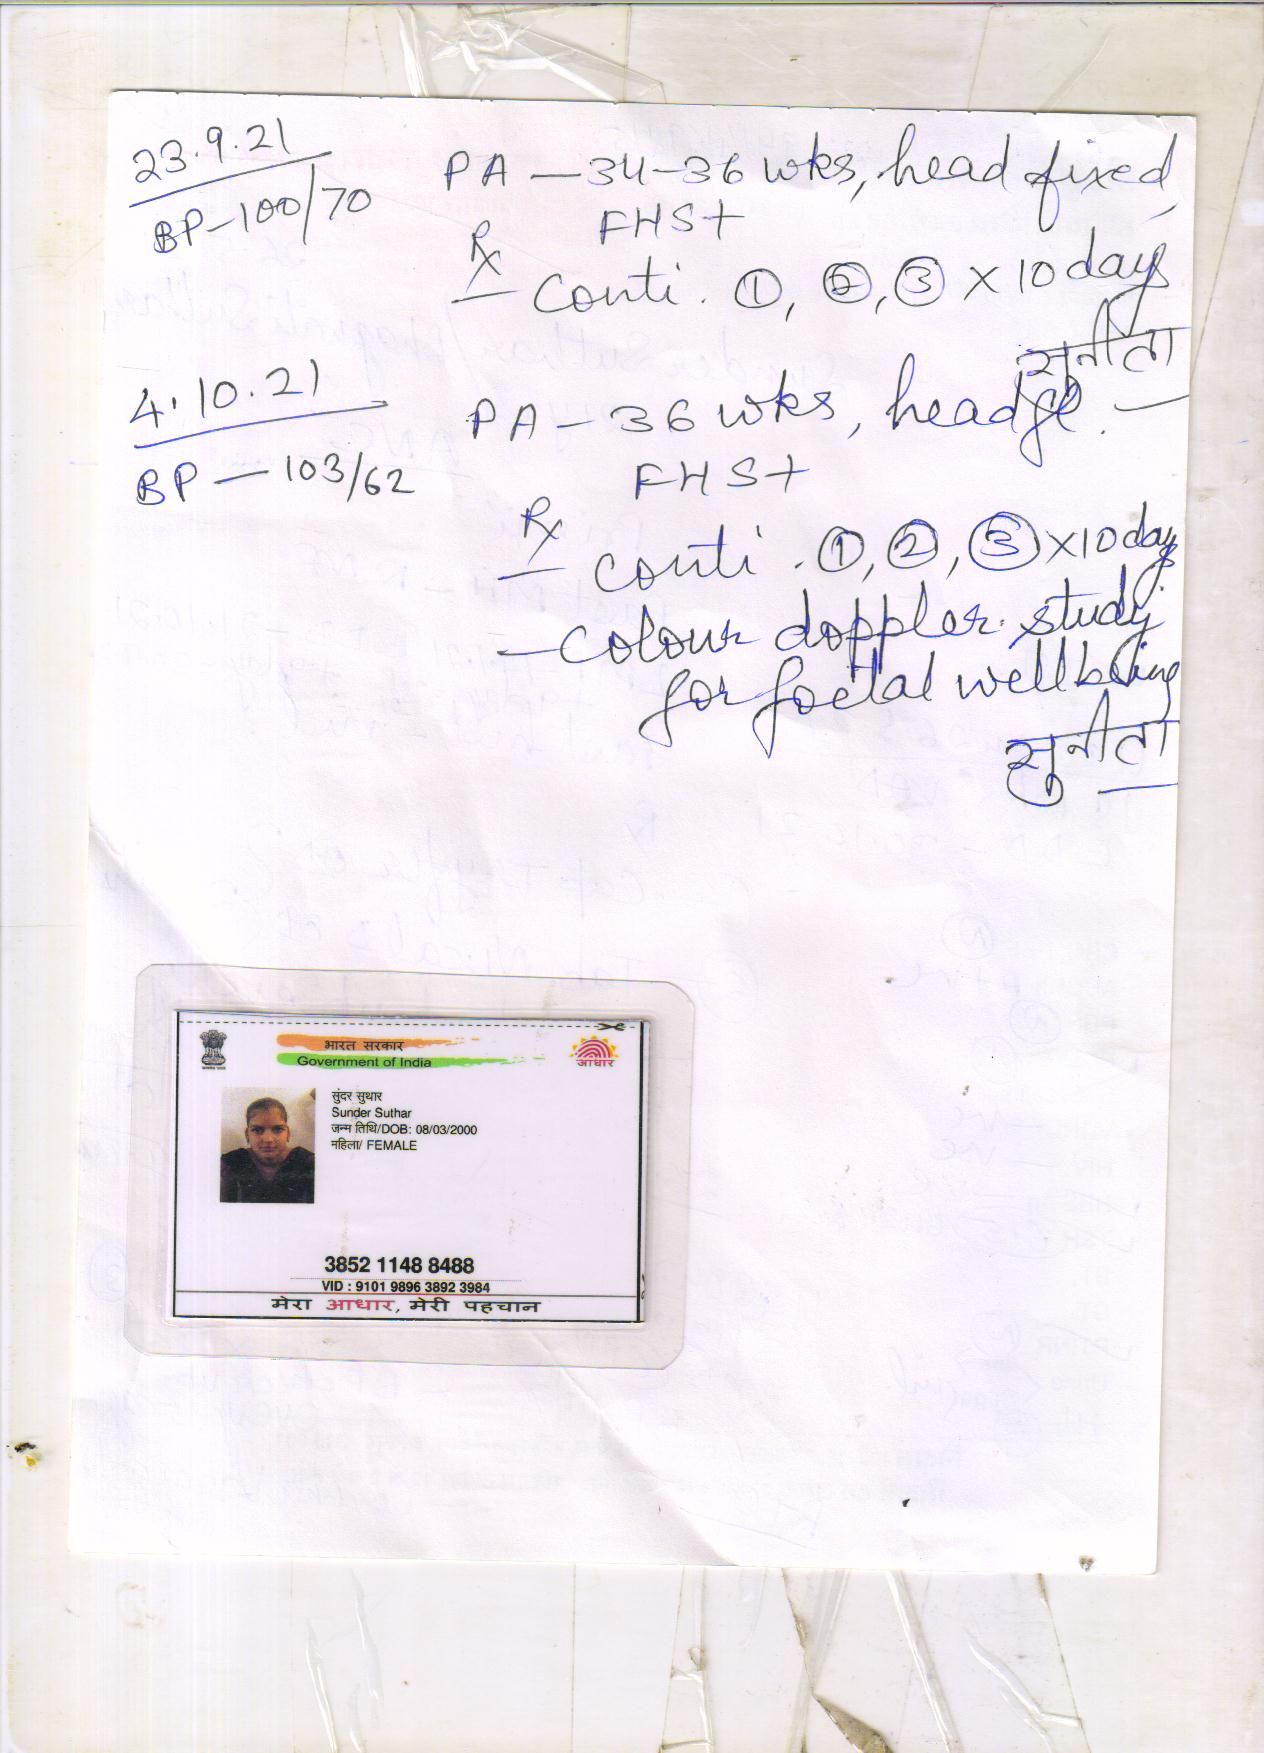 23.9.21
BP-100/70
PA - 34-36 wks, head fixed,
FHS+
Rx
Conti. ①, ②, ③ x 10 days
सुनीता
4.10.21
BP - 103/62
PA - 36 wks, head fe.
FHS+
Rx
conti. ①, ②, ③ x 10 days
- colour doppler study
for foetal wellbeing
सुनीता
भारत सरकार
Government of India
आधार
सुंदर सुथार
Sunder Suthar
जन्म तिथि/DOB: 08/03/2000
महिला/ FEMALE
3852 1148 8488
VID : 9101 9896 3892 3984
मेरा आधार, मेरी पहचान